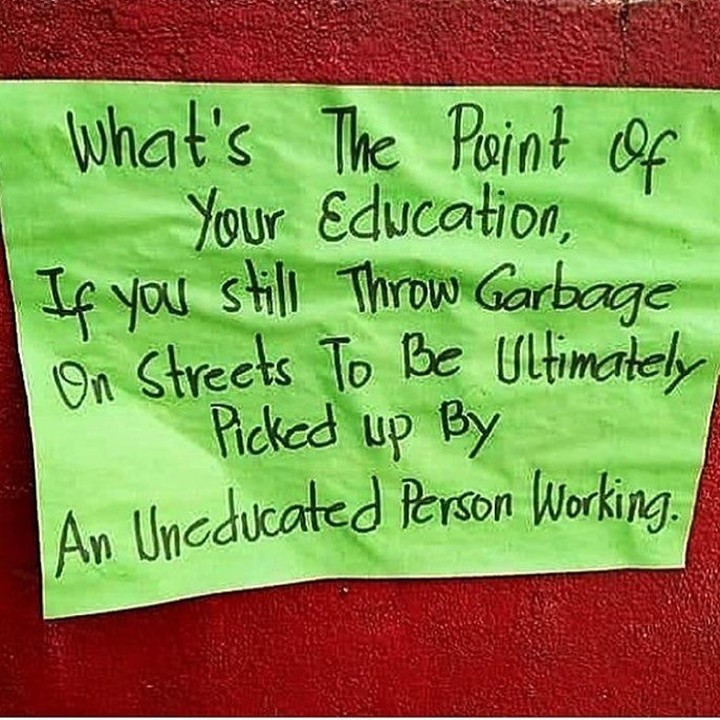 What's The Point Of
Your Education,
If you still Throw Garbage
On Streets To Be Ultimately
Picked up By
An Uneducated Person Working.